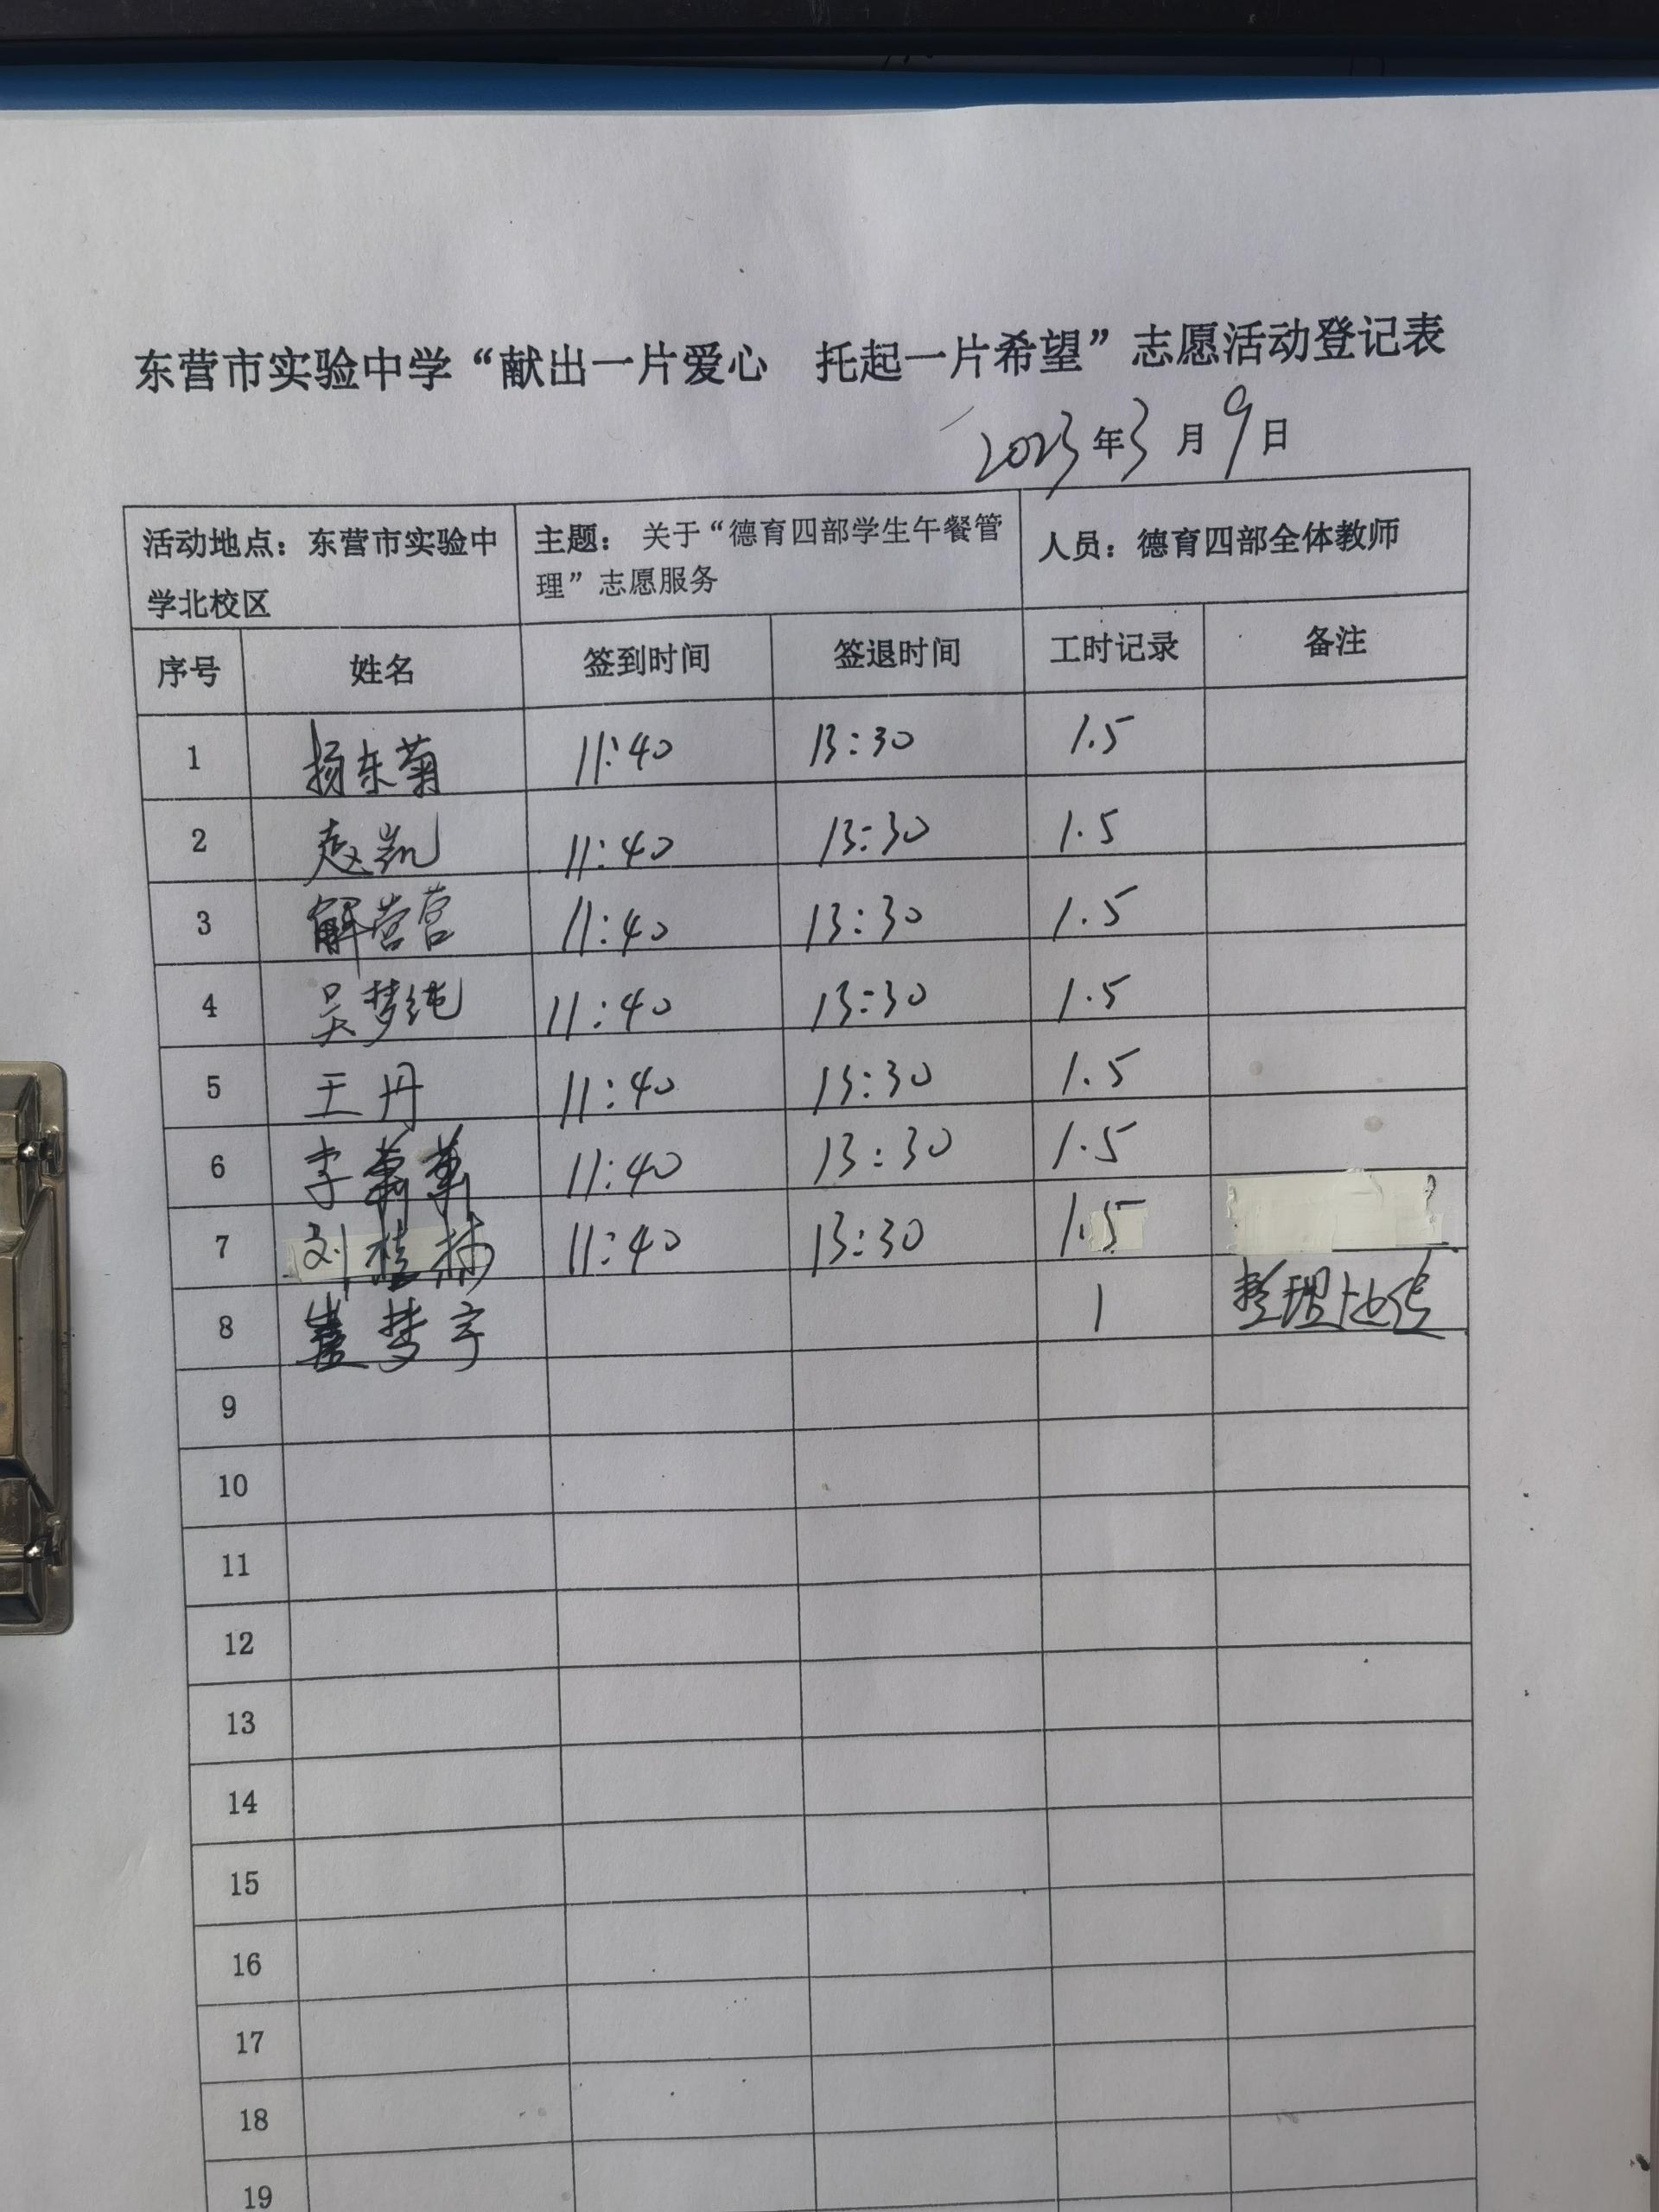 东营市实验中学“献出一片爱心 托起一片希望”志愿活动登记表
2023年3月9日
活动地点：东营市实验中学北校区 主题：关于“德育四部学生午餐管理”志愿服务 人员：德育四部全体教师
序号 姓名 签到时间 签退时间 工时记录 备注
1 杨东菊 11:40 13:30 1.5
2 赵凯 11:40 13:30 1.5
3 解营营 11:40 13:30 1.5
4 吴梦纯 11:40 13:30 1.5
5 王丹 11:40 13:30 1.5
6 李 11:40 13:30 1.5
7 刘桂 11:40 13:30 1.5
8 崔梦宇 1 整理
9
10
11
12
13
14
15
16
17
18
19